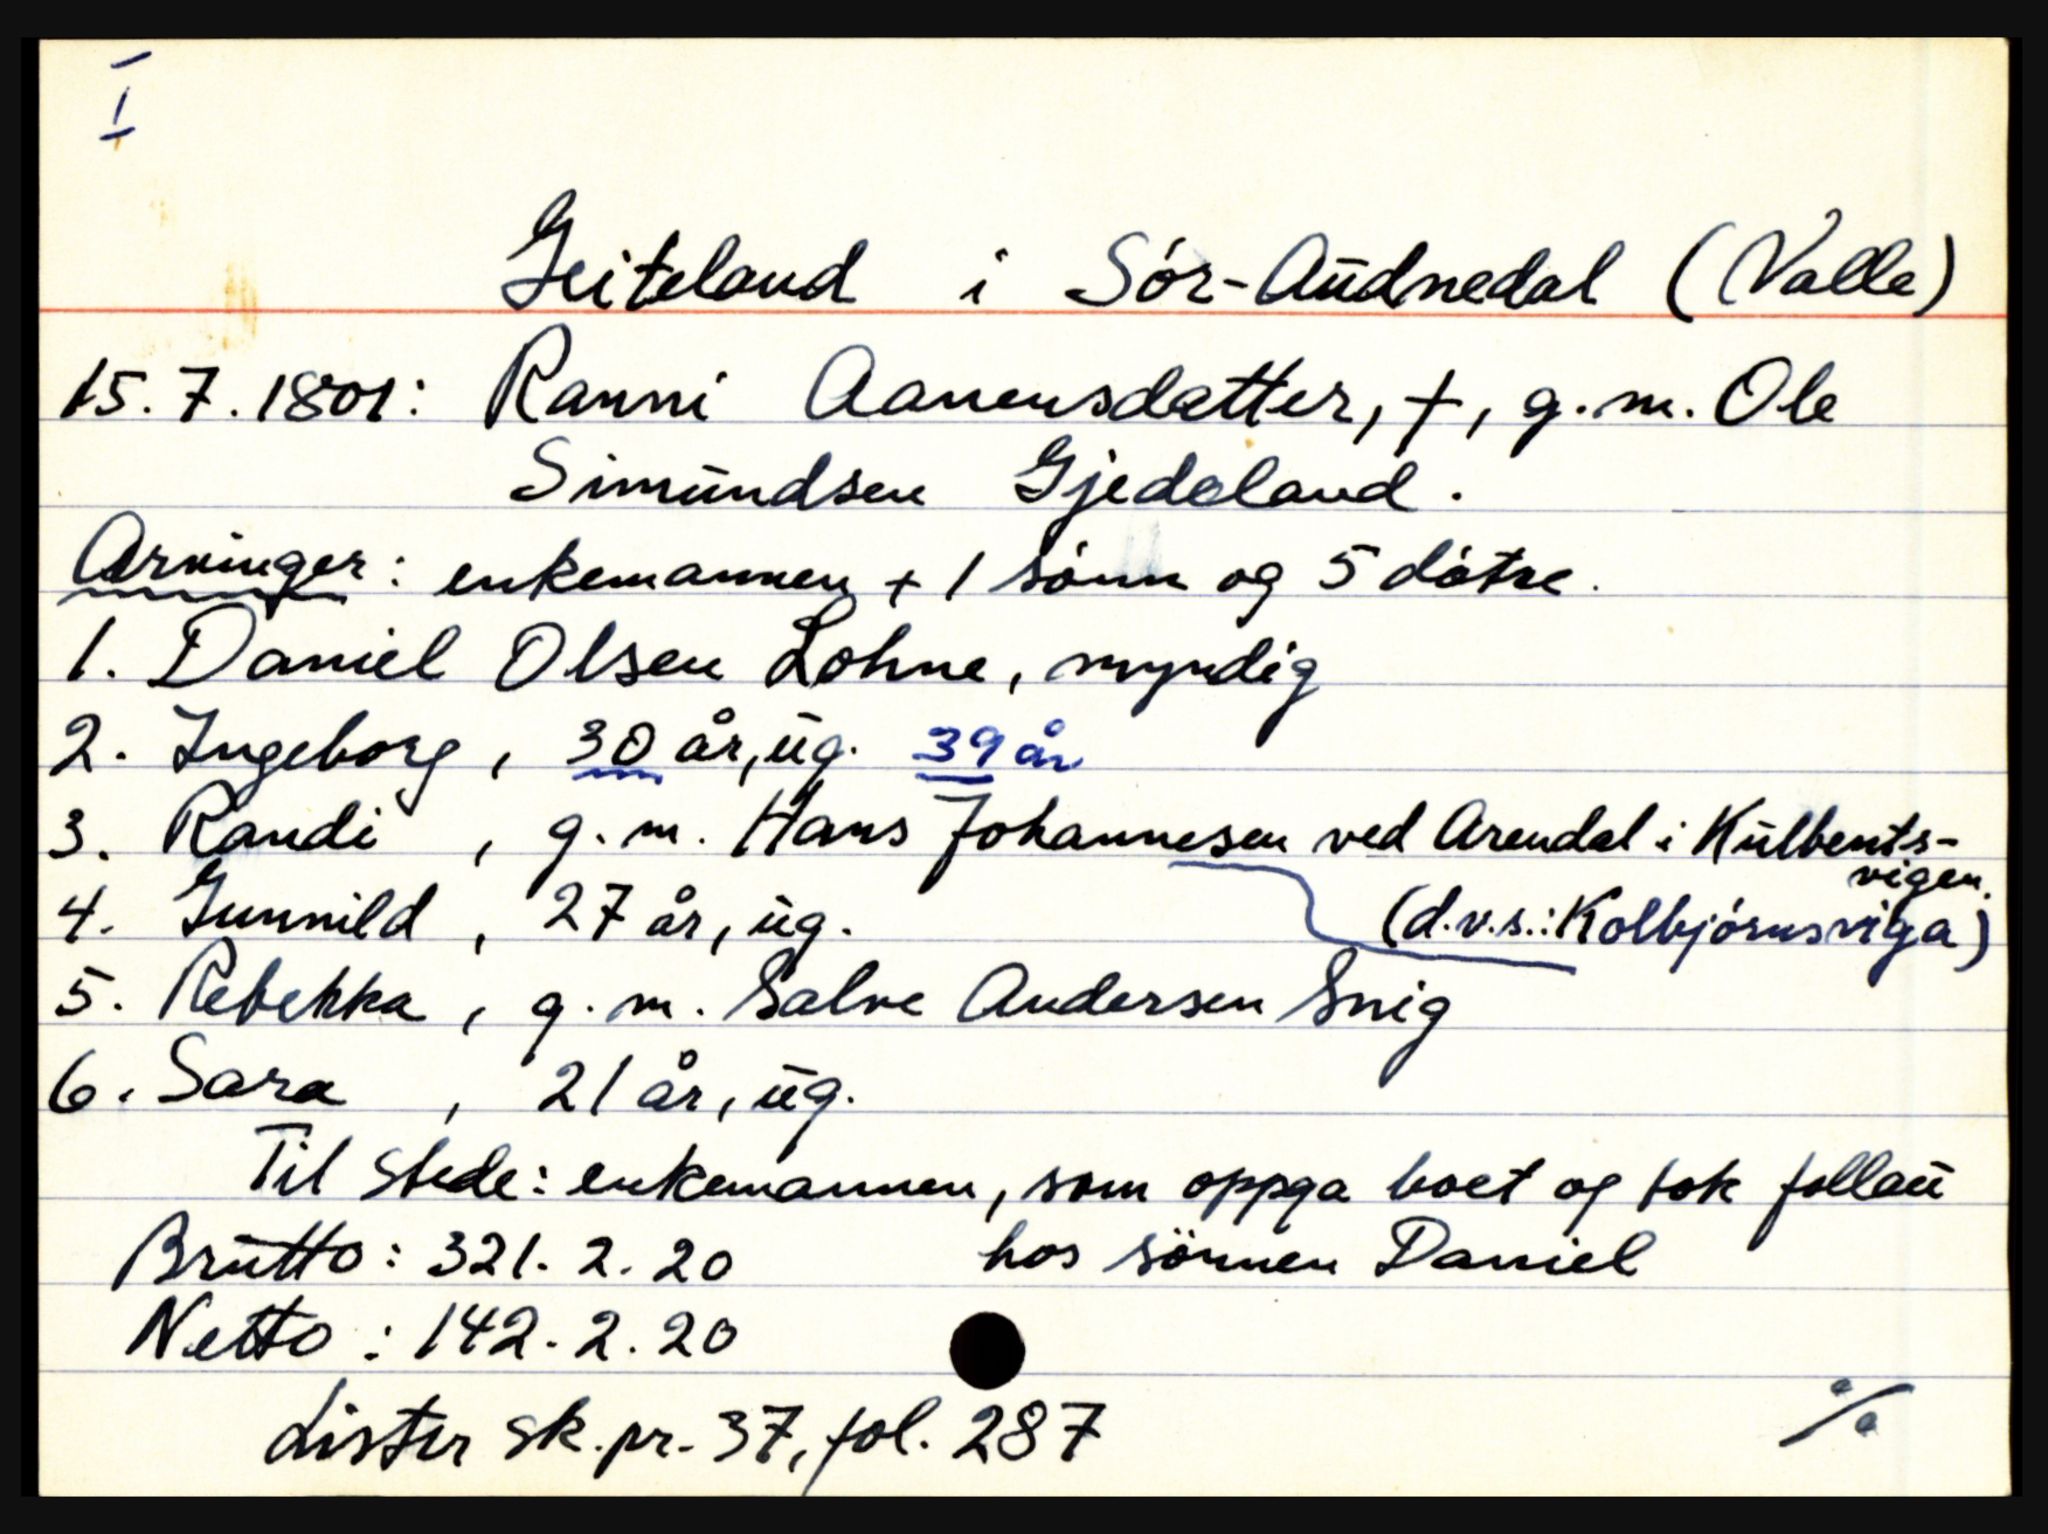 I
Geiteland i Sör-Audnedal (Valle)
15.7.1801: Ranni Aanensdatter, †, g.m. Ole
Simundsen Gjedeland.
Arvinger: enkemannen + 1 sönn og 5 dötre.
1. Daniel Olsen Lohne, myndig
2. Ingeborg, 30 år, ug. 39 år
3. Randi, g.m. Hans Johannesen ved Arendal i Kulbents-
vigen.
(d.v.s.: Kolbjörnsviga)
4. Gunnild, 27 år, ug.
5. Rebekka, g.m. Salve Andersen Snig
6. Sara, 21 år, ug.
Til stede: enkemannen, som oppga boet og tok follau
hos sönnen Daniel
Brutto: 321. 2. 20
Netto: 142. 2. 20
Lister sk.pr. 37, fol. 287
%